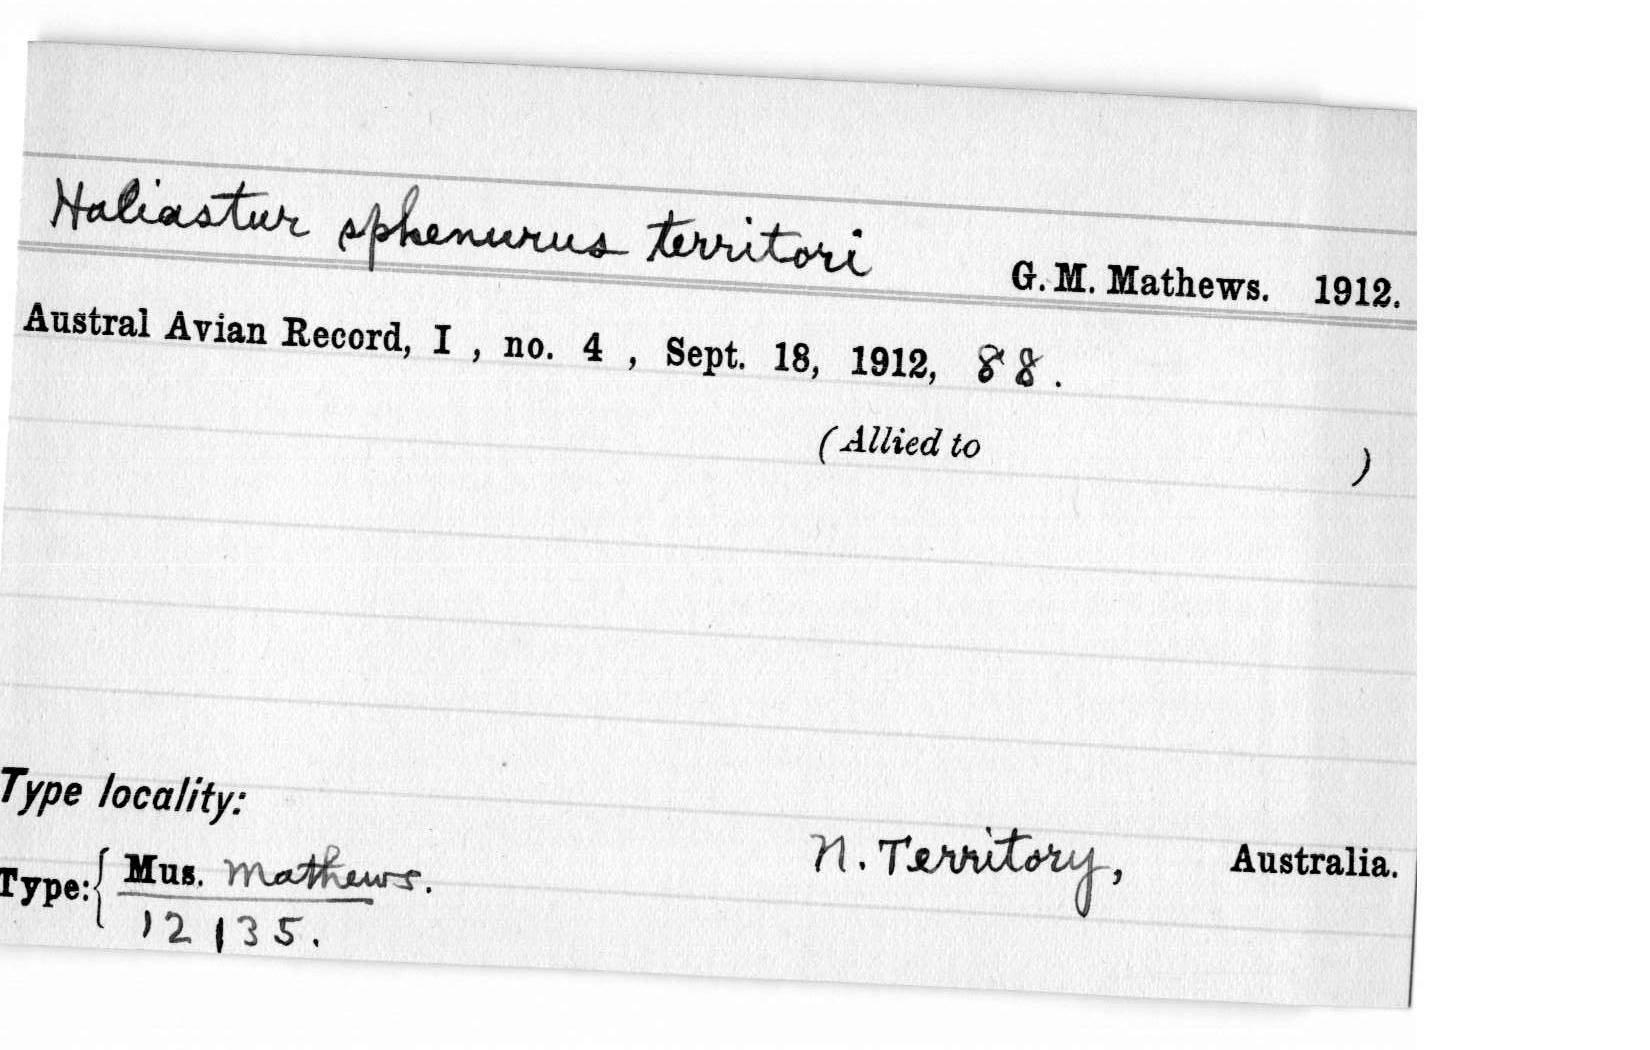 Haliastur sphenurus territori
G. M. Mathews. 1912.
Austral Avian Record, I , no. 4 , Sept. 18, 1912, 88.
(Allied to )
Type locality:
N. Territory, Australia.
Type: { Mus. Mathews.
12135.